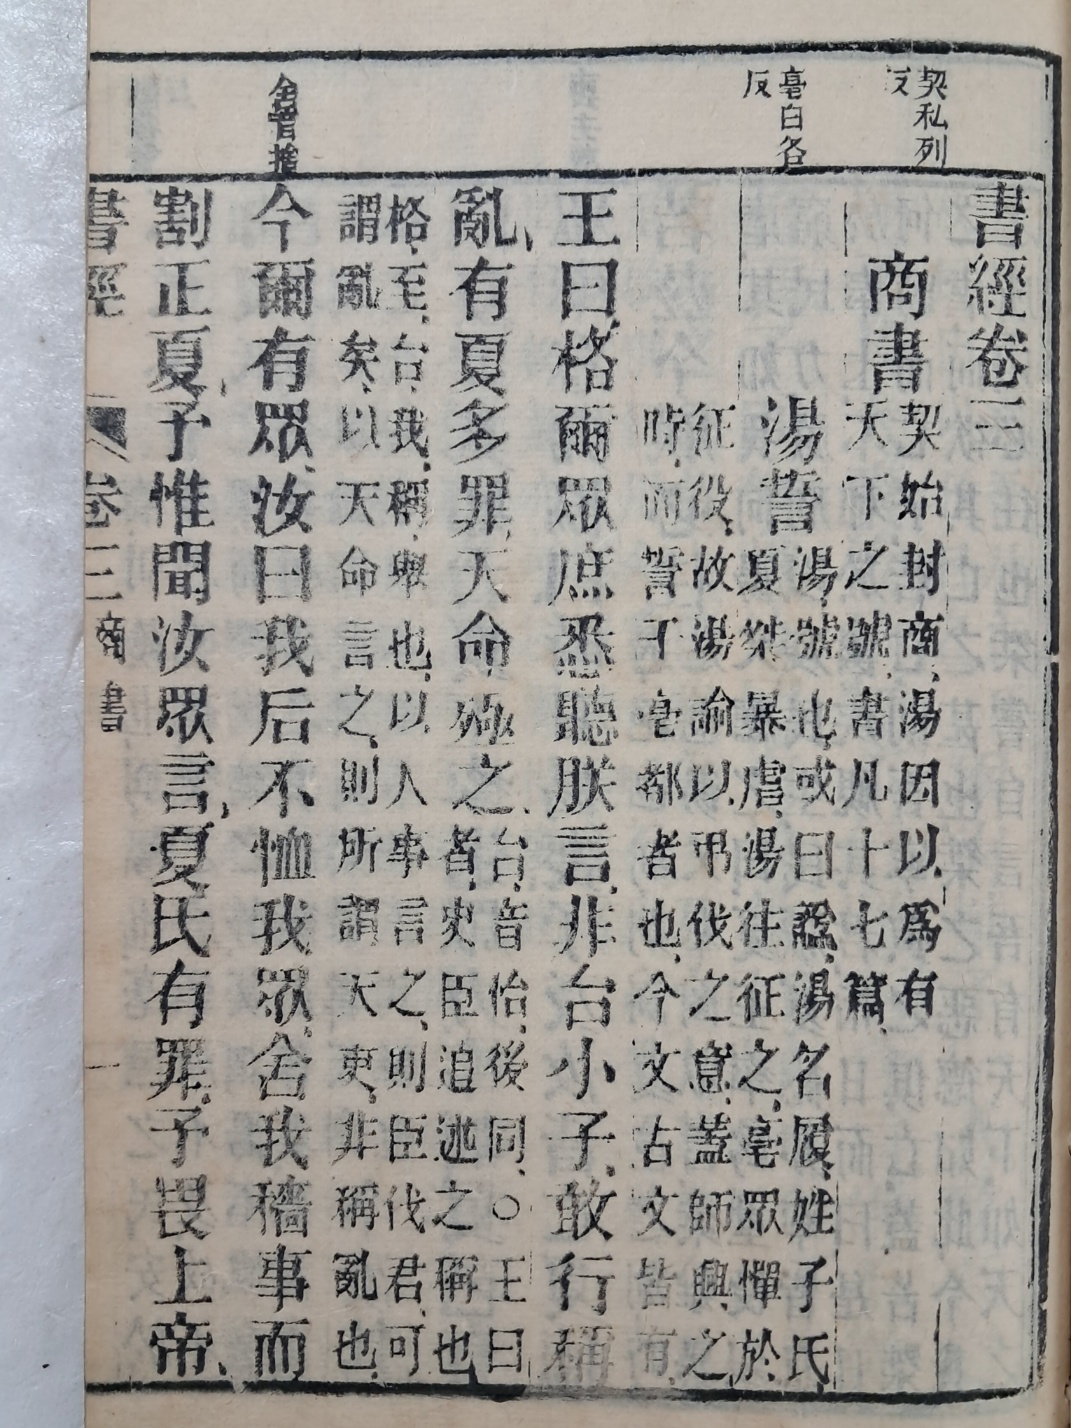 契私列
反
亳白各
反
舍音捨
書經卷三
商書
契始封商、湯因以爲有
天下之號、書凡十七篇、
湯誓
湯、號也、或曰諡、湯名履、姓子氏、
夏桀暴虐、湯往征之、亳眾憚於
征役、故湯諭以弔伐之意、蓋師興之
時、而誓于亳都者也、今文古文皆有、
王曰格爾眾庶悉聽朕言、非台小子、敢行稱
亂、有夏多罪、天命殛之、
台、音怡、後同、○王曰
者、史臣追述之稱也
格、至、台、我、稱、舉也、以人事言之、則臣伐君、可
謂亂矣、以天命言之、則所謂天吏、非稱亂也、
今爾有眾、汝曰我后不恤我眾、舍我穡事而
割正夏、予惟聞汝眾言、夏氏有罪、予畏上帝、
書經 卷三 商書 一